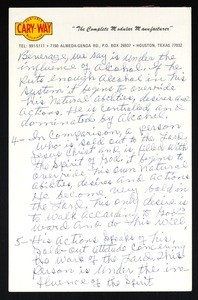 CARY-WAY
"The Complete Modular Manufacturer"
TEL. 991-6111 - 7700 ALMEDA-GENOA RD., P.O. BOX • HOUSTON, TEXAS
Beverage, we say is under the
influence of Alcohol. if he
puts enough Alcohol in his
system it begins to override
his Natural abilities, desires and
Actions, he is controlled and
dominated by Alcohol.
4- In Comparison, a person
who is sold out to the Lord,
and is filled with
the Spirit of God, it begins to
override his own natural
abilities, desires and Actions
He become very bold in
the Lord, his only desire is
to walk according to God's
Word and do His will.
5- His Actions speaks of his
sold out attitude Concerning
the Work of the Lord. This
Person is Under the in-
fluence of the Spirit